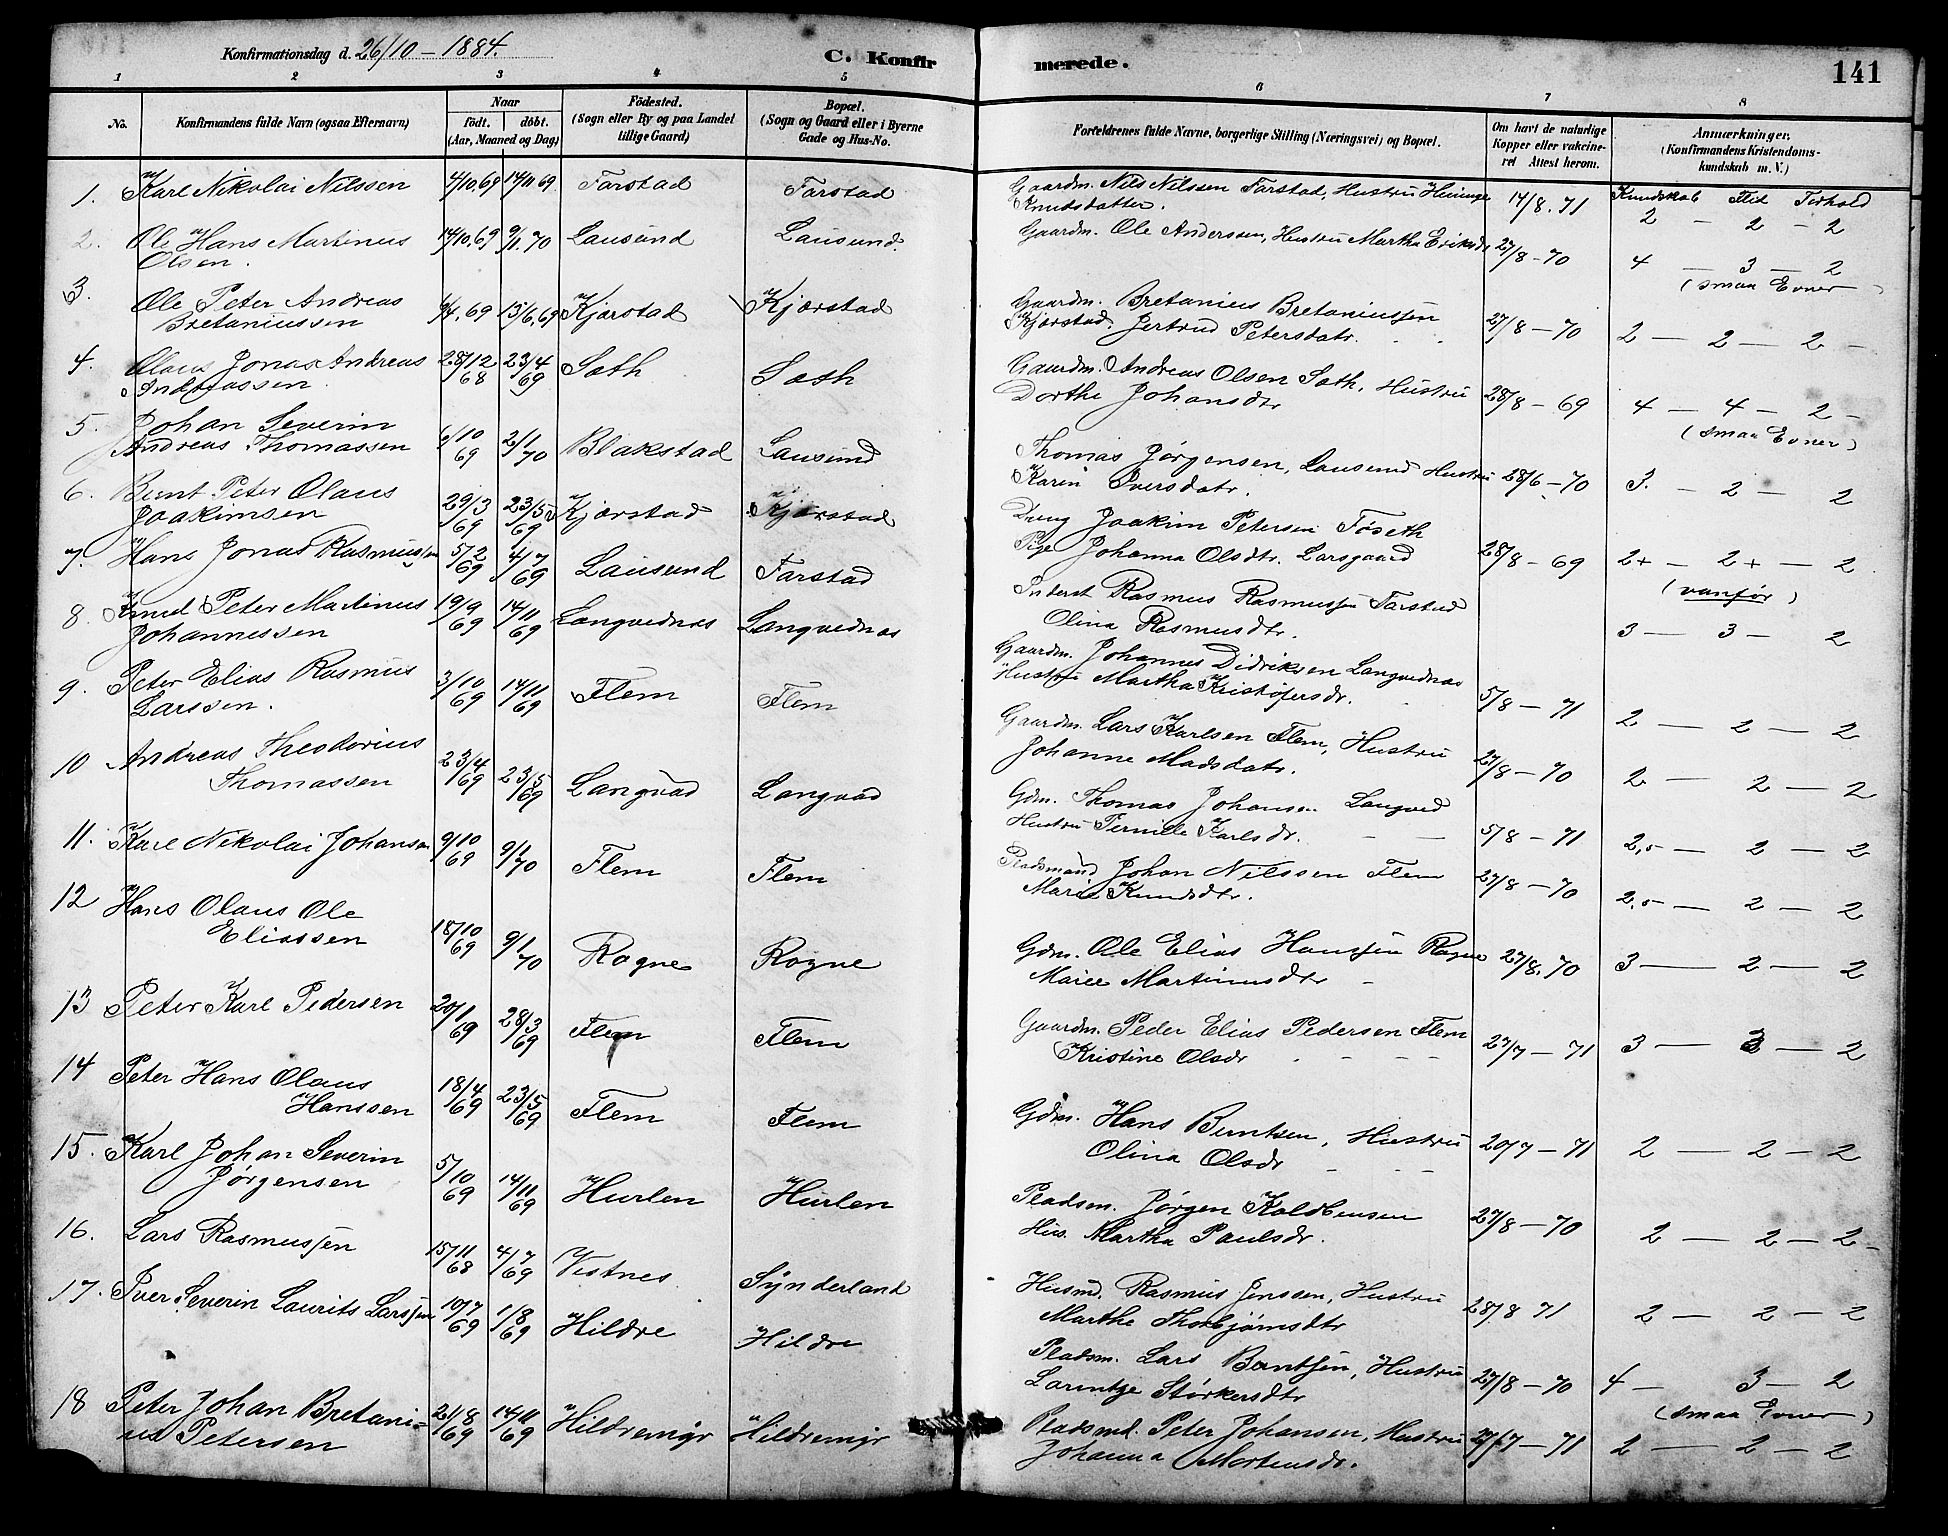 Konfirmationsdag d. 26/10 – 1884.
C. Konfirmerede.
141
1 2 3 4 5 6 7 8
No.
Konfirmandens fulde Navn (ogsaa Efternavn)
Naar
födt. döbt.
(Aar, Maaned og Dag)
Födested.
(Sogn eller By og paa Landet
tillige Gaard)
Bopæl.
(Sogn og Gaard eller i Byerne
Gade og Hus-No.
Forældrenes fulde Navne, borgerlige Stilling (Næringsvei) og Bopæl.
Om havt de naturlige
Kopper eller vakcine-
ret Attest herom.
Anmærkninger.
(Konfirmandens Kristendoms-
kundskab m. V.)
Kundskab Flid Forhold
1. Karl Nikolai Nilssen 4/10.69 14/11 69 Farstad Farstad Gaardm. Nils Nilssen Farstad, Hustru
Knudsdatter. 14/8.71 2 – 2 – 2
2. Ole Hans Martinus 14/10.69 9/1.70 Lausund Lausund. Gaardm. Ole Anderssen, Hustru Martha Eriksdr 27/8–70
Olsen. 4 – 3 – 2
(smaa Evner)
3. Ole Peter Andreas 4/4.69 15/6.69 Kjærstad Kjærstad Gaardm. Bretanius Bretaniussen
Bretaniussen Kjærstad. Jertrud Petersdatr. 27/8–70 2 – 2 – 2 –
4. Olaus Jonas Andreas 28/12 68 23/4 69 Sæth Sæth Gaardm. Andreas Olsen Sæth, Hustru
Andreassen Dorthe Johansdtr 28/8–69 4 – 4 – 2 –
(smaa Evner)
5. Johan Severin
Andreas Thomassen 6/10 69 2/1 70 Blakstad Lausund Thomas Jørgensen, Lausund Hustru
Karin Iversdatr. 28/6–70 3. – 2 – 2
6. Bernt Peter Olaus
Joakimsen 29/3 69 23/5 69 Kjærstad Kjærstad Ung Joakim Petersen Føseth
Pige Johanna Olsdtr. Larsgaard 28/8–69 2+ – 2+ – 2
(vanfør)
7. Hans Jonas Rasmussen 5/2 69 4/7 69 Lausund Farstad Inderst Rasmus Rasmussen Farstad
Olina Rasmusdtr. 3 – 3 – 2
8. Knud Peter Martinus 19/9 69 14/11 69 Langvednæs Langvednæs
Johannessen Gaardm. Johannes Didriksen Langvednæs
Hustru Martha Kristofersdr. 5/8–71 2 – 2 – 2
9. Peter Elias Rasmus
Larssen. 3/10 69 14/11 69 Flem Flem Gaardm. Lars Karlsen Flem, Hustru
Johanne Madsdatr. 27/8–70 2 – 2 – 2
10 Andreas Theodorius
Thomassen 23/4 69 23/5 69 Langvad Langvad Gdm. Thomas Johansen Langved
Hustru Pernille Karlsdr. 5/8–71 2,5 – 2 – 2
11. Karl Nikolai Johansen 9/10 69 9/1 70 Flem Flem Pladsmand Johan Nilssen Flem
Marie Knudsdtr. 27/8–70 2.5 – 2 – 2
12 Hans Olaus Ole
Eliassen 18/10 69 9/1 70 Rogne Rogne Gdm. Ole Elias Hanssen Rogne
Marie Martinusdtr 27/8.70 3 – 2 – 2
13 Peter Karl Pedersen 20/1 69 28/3 69 Flem Flem Gaardm. Peder Elias Pedersen Flem
Kristine Olsdr 27/7–71 3 – 3 – 2
14 Peter Hans Olaus
Hanssen 18/4 69 23/5 69 Flem Flem Gdm. Hans Berntsen, Hustru
Olina Olsdr 20/7–71 2 – 2 – 2
15. Karl Johan Severin
Jørgensen 5/10 69 14/11 69 Hurlen Hurlen Pladsm. Jørgen Koldbensen
Hus. Martha Paulsdr. 27/8–70 2 – 2 – 2 –
16. Lars Rasmussen 15/11 68 4/7 69 Vestnes Synderland Husmd. Rasmus Jenssen, Hustru
Marthe Thorbjørnsdtr 28/8 71 2 – 2 – 2
17. Iver Severin Laurits Larssen 10/7 69 1/8 69 Hildre Hildre Pladsm. Lars Berntsen, Hustru
Larentze Størkersdtr 27/8–70 4 – 3 – 2
(smaa Evner)
18 Peter Johan Bretani-
us Petersen 21/8 69 14/11 69 Hildremyr Hildremyr Pladsmd. Peter Johansen, Hustru
Johanna Mortensdr. 27/7–71 2 – 2 – 2